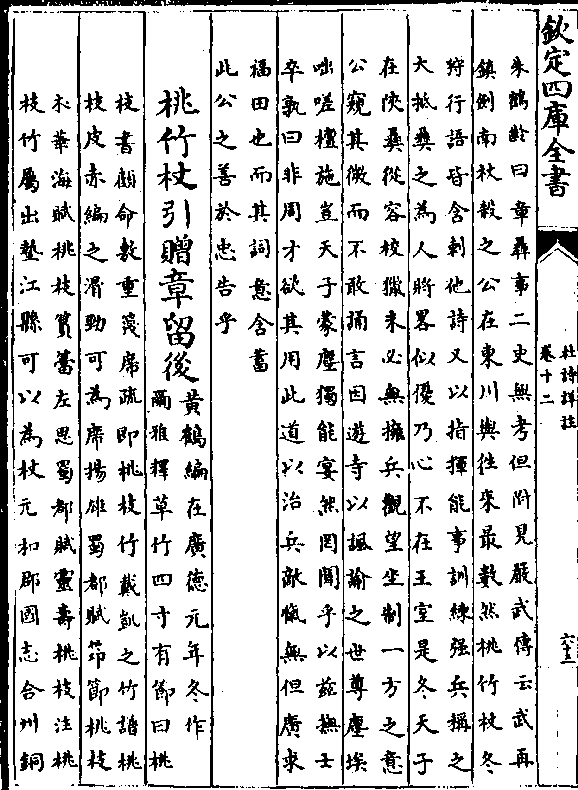 欽定四庫全書
杜詩詳註
卷十二
朱鶴齡曰章彞事二史無考但附見嚴武傳云武再
鎮劍南杖殺之公在東川與往來最數然桃竹杖冬
狩行語皆含刺他詩又以指揮能事訓練强兵稱之
大抵彞之為人將畧似優乃心不在王室是冬天子
在陜彞從容校獵未必無擁兵觀望坐制一方之意
公窺其微而不敢誦言因遊寺以諷諭之世尊塵埃
咄嗟檀施豈天子蒙塵獨能宴然罔聞乎以兹撫士
卒孰曰非周才欲其用此道以治兵敵愾無但廣求
福田也而其詞意含蓄
此公之善於忠告乎
桃竹杖引贈章留後
黄鶴編在廣德元年冬作
爾雅釋草竹四寸有節曰桃
枝書顧命敷重篾席疏即桃枝竹戴凱之竹譜桃
枝皮赤編之滑勁可為席揚雄蜀都賦笻節桃枝
木華海賦桃枝篔簹左思蜀都賦靈壽桃枝注桃
枝竹屬出墊江縣可以為杖元和郡國志合州銅